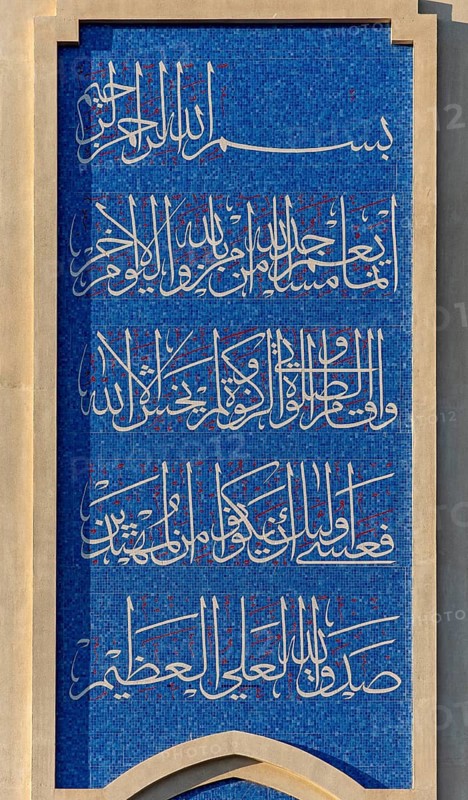 بسم الله الرحمن الرحيم
إنما يعمر مساجد الله من آمن بالله واليوم الآخر
وأقام الصلوة وآتى الزكوة ولم يخش إلا الله
فعسى أولئك أن يكونوا من المهتدين
صدق الله العلي العظيم
PHOTO12